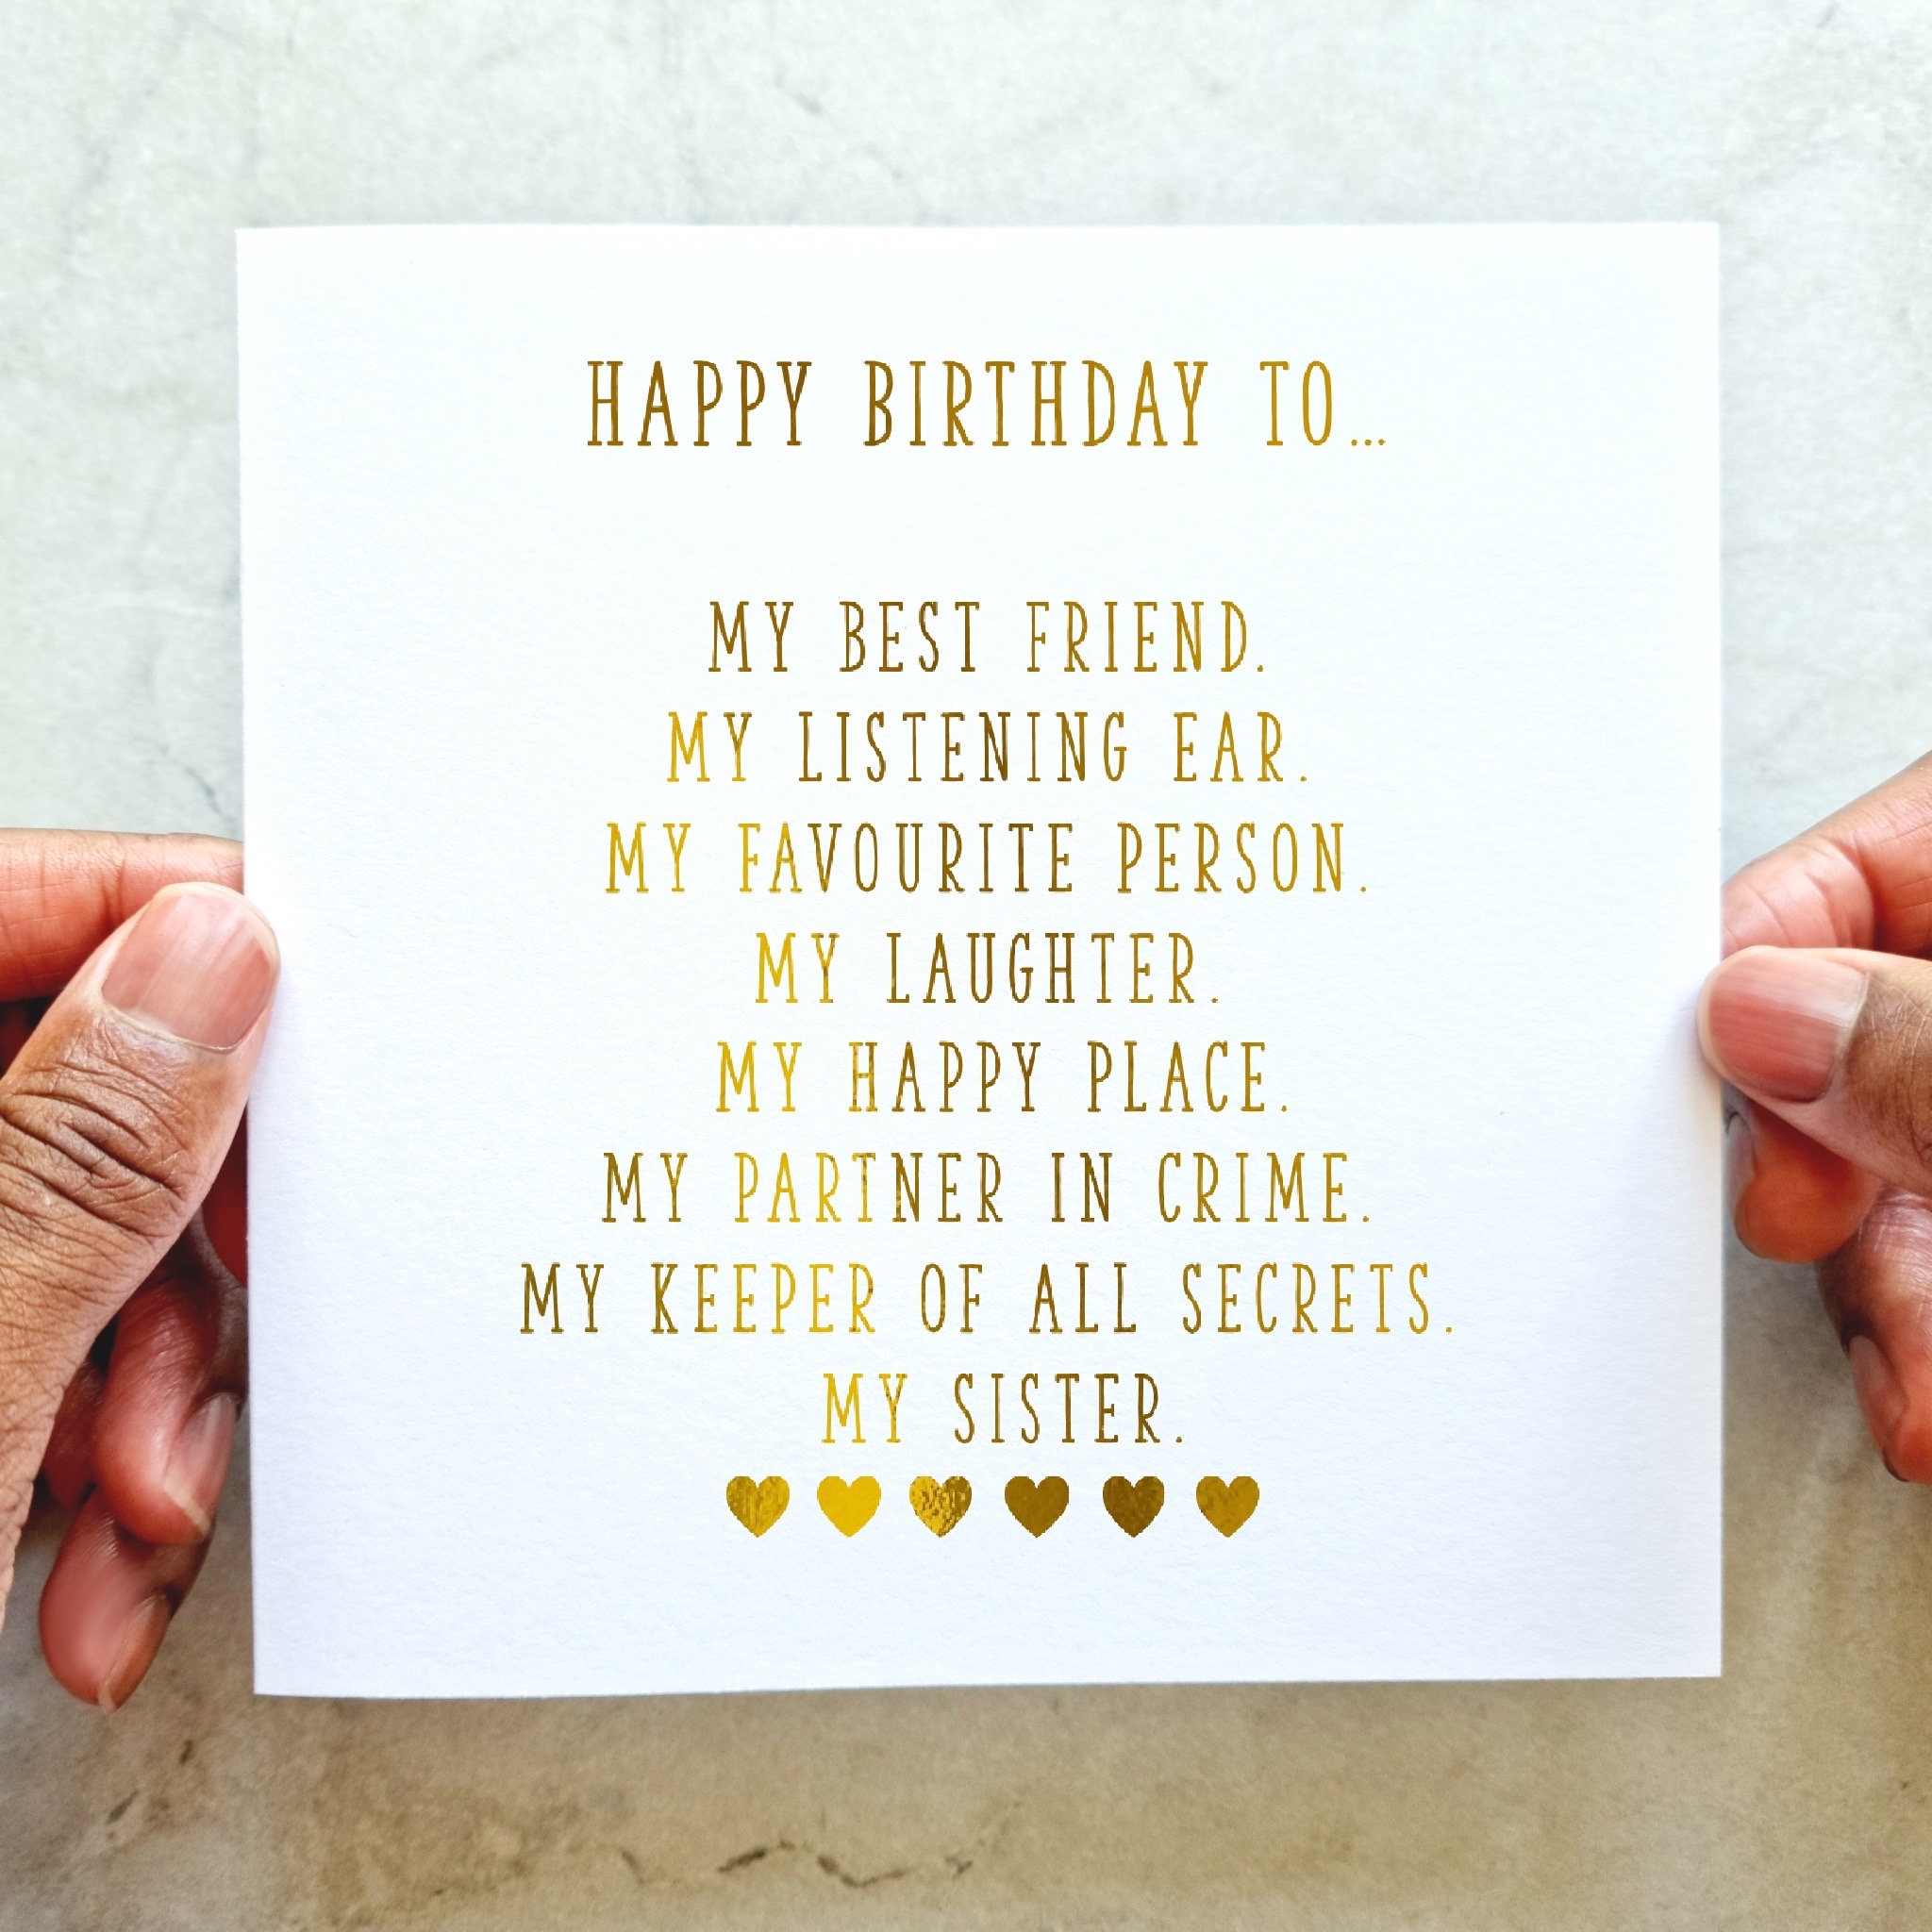 HAPPY BIRTHDAY TO...
MY BEST FRIEND.
MY LISTENING EAR.
MY FAVOURITE PERSON.
MY LAUGHTER.
MY HAPPY PLACE.
MY PARTNER IN CRIME.
MY KEEPER OF ALL SECRETS.
MY SISTER.